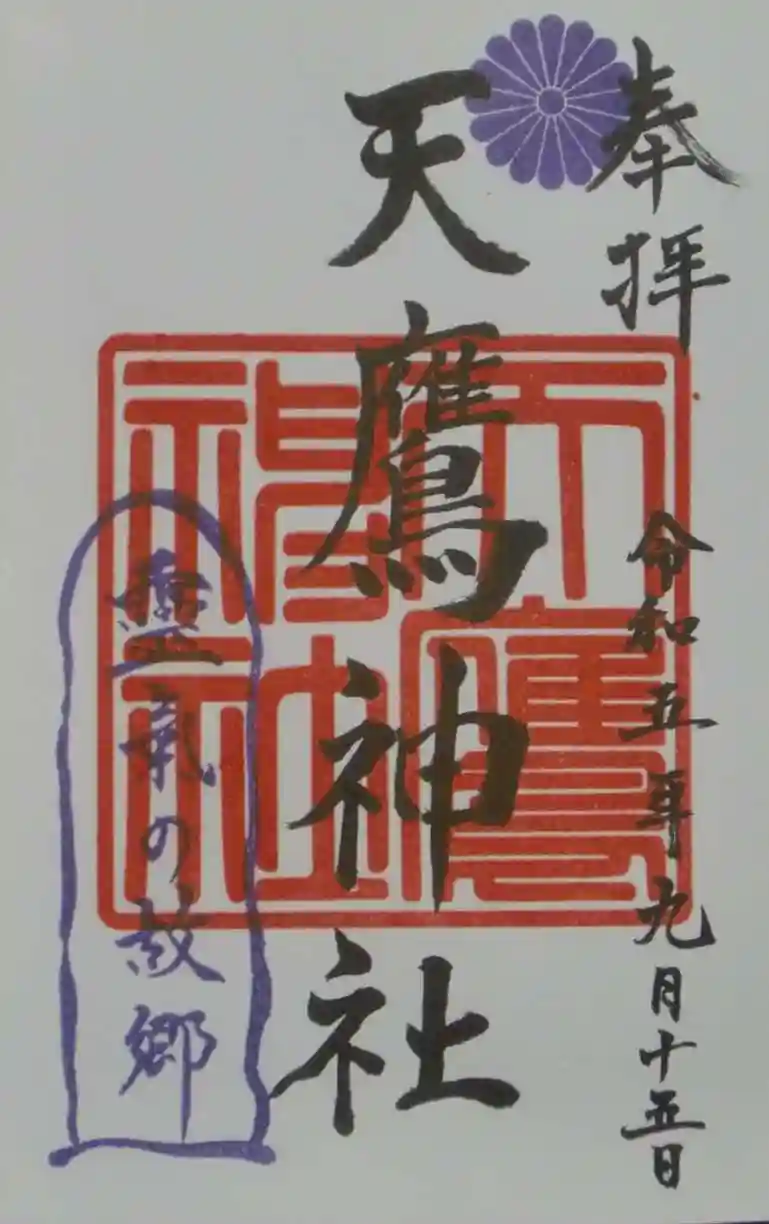 奉拝
天鷹神社
天鷹神社
令和五年九月十五日
霊氣の故郷